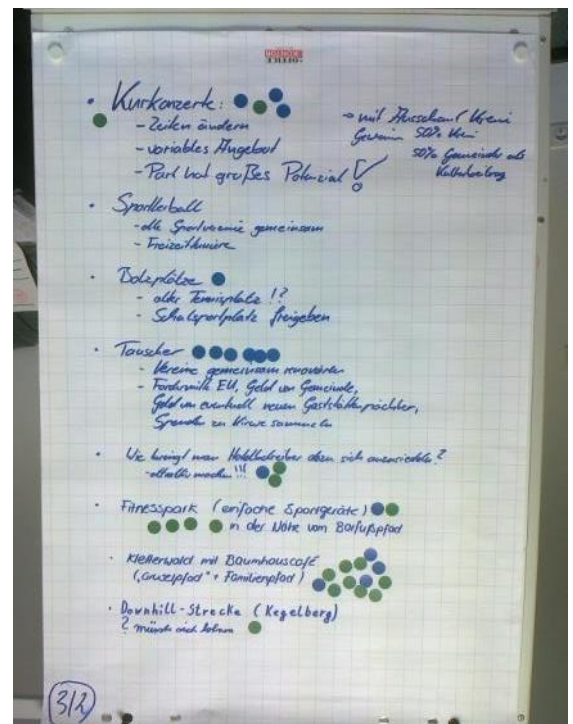 • Kurkonzerte:
- Zeiten ändern
- variables Angebot
- Park hat großes Potenzial!
→ mit Ausschank Verein
Gewinn 50% Verein
50% Gemeinde als
• Sportlerball
- alle Sportvereine gemeinsam
-
• Bolzplätze
- alter Tennisplatz!?
- Schulsportplatz freigeben
• Tauscher
- Vereine gemeinsam renovieren
- Fördermittel EU, Geld von Gemeinde,
Geld von eventuell neuen Gaststättenpächter,
Spenden zu Kirwe sammeln
• Wie bringt man Hotelbetreiber dazu sich anzusiedeln?
- attraktiv machen!!!
• Fitnesspark (einfache Sportgeräte)
in der Nähe vom Barfußpfad
• Kletterwald mit Baumhauscafé
("Gruselpfad" + Familienpfad)
• Downhill-Strecke (Kegelberg)
? müsste sich lohnen
3/2